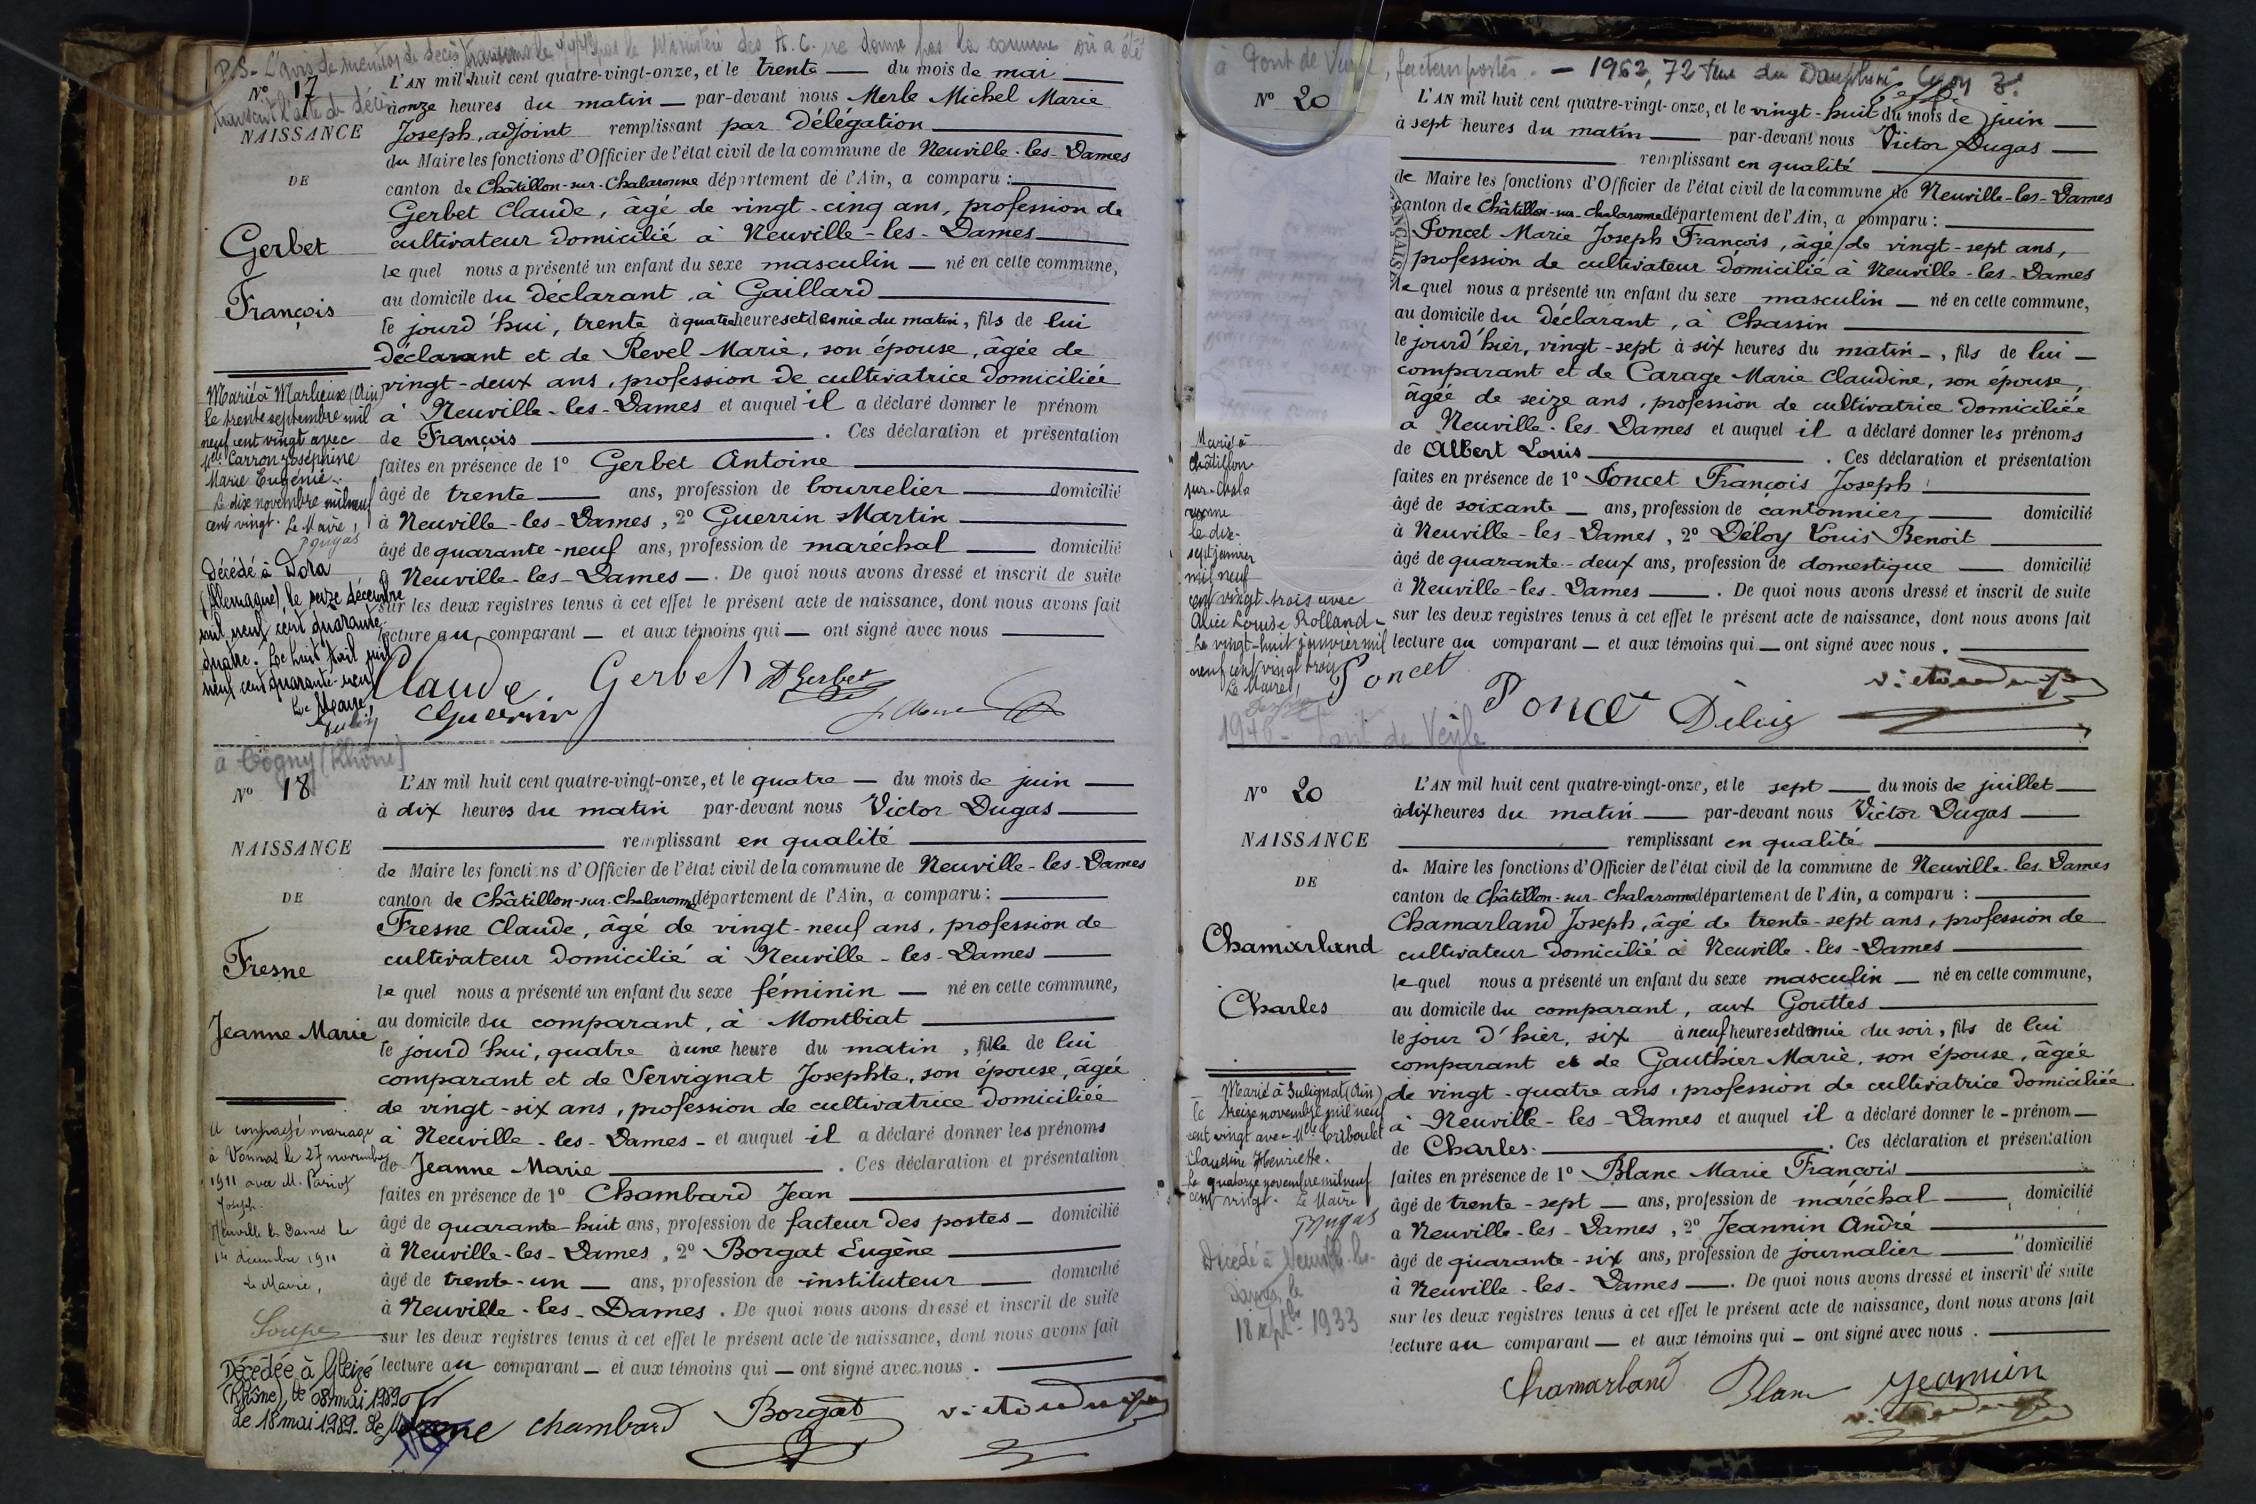 P.S. L'avis de mention de décès transmis le par le Ministère des A.C. ne donne pas la commune où a été
transcrit l'acte de décès
N° 17
NAISSANCE
DE
Gerbet
François
L'AN mil huit cent quatre-vingt-onze, et le trente — du mois de mai —
à onze heures du matin — par-devant nous Merle Michel Marie
Joseph, adjoint remplissant par Délégation —
du Maire les fonctions d'Officier de l'état civil de la commune de Neuville-les-Dames
canton de Châtillon-sur-Chalaronne département de l'Ain, a comparu : —
Gerbet Claude, âgé de vingt-cinq ans, profession de
cultivateur domicilié à Neuville-les-Dames —
le quel nous a présenté un enfant du sexe masculin — né en cette commune,
au domicile du déclarant, à Gaillard —
le jourd'hui, trente à quatre heures et demie du matin, fils de lui
déclarant et de Revel Marie, son épouse, âgée de
vingt-deux ans, profession de cultivatrice domiciliée
à Neuville-les-Dames et auquel il a déclaré donner le prénom
de François — . Ces déclaration et présentation
faites en présence de 1° Gerbet Antoine —
âgé de trente — ans, profession de bourrelier — domicilié
à Neuville-les-Dames, 2° Guerrin Martin —
âgé de quarante-neuf ans, profession de maréchal — domicilié
à Neuville-les-Dames —. De quoi nous avons dressé et inscrit de suite
sur les deux registres tenus à cet effet le présent acte de naissance, dont nous avons fait
lecture au comparant — et aux témoins qui — ont signé avec nous —
Claude Gerbet A Gerbet
Guerrin
Marié à Marlieux (Ain)
le trente septembre mil
neuf cent vingt avec
Mlle Carron Joséphine
Marie Eugénie.
Le dix novembre mil neuf
cent vingt. Le Maire,
Dugas
Décédé à Dora
(Allemagne), le seize décembre
mil neuf cent quarante-
quatre. Le huit Avril mil
neuf cent quarante-neuf
Le Maire,
à Cogny (Rhône)
N° 18
NAISSANCE
DE
Fresne
Jeanne Marie
L'AN mil huit cent quatre-vingt-onze, et le quatre — du mois de juin —
à dix heures du matin par-devant nous Victor Dugas —
— remplissant en qualité —
de Maire les fonctions d'Officier de l'état civil de la commune de Neuville-les-Dames
canton de Châtillon-sur-Chalaronne département de l'Ain, a comparu : —
Fresne Claude, âgé de vingt-neuf ans, profession de
cultivateur domicilié à Neuville-les-Dames —
le quel nous a présenté un enfant du sexe féminin — né en cette commune,
au domicile du comparant, à Montbiat —
le jourd'hui, quatre à une heure du matin, fille de lui
comparant et de Servignat Josephte, son épouse, âgée
de vingt-six ans, profession de cultivatrice domiciliée
à Neuville-les-Dames — et auquel il a déclaré donner les prénoms
de Jeanne Marie — . Ces déclaration et présentation
faites en présence de 1° Chambard Jean —
âgé de quarante-huit ans, profession de facteur des postes — domicilié
à Neuville-les-Dames, 2° Borgat Eugène —
âgé de trente-un — ans, profession de instituteur — domicilié
à Neuville-les-Dames. De quoi nous avons dressé et inscrit de suite
sur les deux registres tenus à cet effet le présent acte de naissance, dont nous avons fait
lecture au comparant — et aux témoins qui — ont signé avec nous. —
Chambard Borgat Victor Dugas
A contracté mariage
à Vonnas le 27 novembre
1911 avec M. Pariot
Joseph.
Neuville les Dames le
14 décembre 1911
Le Maire,
Soupe
Décédée à Gleizé
(Rhône), le 08 mai 1989
Le 18 mai 1989. Le
à Pont de Veyle, facteur postes. — 1962, 72 rue du Dauphiné Lyon 3e
N° 20
L'AN mil huit cent quatre-vingt-onze, et le vingt-huit du mois de juin —
à sept heures du matin — par-devant nous Victor Dugas —
— remplissant en qualité —
de Maire les fonctions d'Officier de l'état civil de la commune de Neuville-les-Dames
canton de Châtillon-sur-Chalaronne département de l'Ain, a comparu : —
Poncet Marie Joseph François, âgé de vingt-sept ans,
profession de cultivateur domicilié à Neuville-les-Dames
le quel nous a présenté un enfant du sexe masculin — né en cette commune,
au domicile du déclarant, à Chassin —
le jourd'hier, vingt-sept à six heures du matin —, fils de lui —
comparant et de Carage Marie Claudine, son épouse,
âgée de seize ans, profession de cultivatrice domiciliée
à Neuville-les-Dames et auquel il a déclaré donner les prénoms
de Albert Louis — . Ces déclaration et présentation
faites en présence de 1° Poncet François Joseph —
âgé de soixante — ans, profession de cantonnier — domicilié
à Neuville-les-Dames, 2° Déloy Louis Benoit —
âgé de quarante-deux ans, profession de domestique — domicilié
à Neuville-les-Dames —. De quoi nous avons dressé et inscrit de suite
sur les deux registres tenus à cet effet le présent acte de naissance, dont nous avons fait
lecture au comparant — et aux témoins qui — ont signé avec nous. —
Poncet Poncet Déloy Victor Dugas
Marié à
Châtillon
sur-Chala
ronne
le dix-
sept janvier
mil neuf
cent vingt-trois avec
Alice Louise Rolland —
Le vingt-huit janvier mil
neuf cent vingt trois
Le Maire,
1946 - Pont de Veyle
N° 20
NAISSANCE
DE
Chamarland
Charles
L'AN mil huit cent quatre-vingt-onze, et le sept — du mois de juillet —
à dix heures du matin — par-devant nous Victor Dugas —
— remplissant en qualité —
de Maire les fonctions d'Officier de l'état civil de la commune de Neuville-les-Dames
canton de Châtillon-sur-Chalaronne département de l'Ain, a comparu : —
Chamarland Joseph, âgé de trente-sept ans, profession de
cultivateur domicilié à Neuville-les-Dames —
le quel nous a présenté un enfant du sexe masculin — né en cette commune,
au domicile du comparant, aux Gouttes —
le jour d'hier, six à neuf heures et demie du soir, fils de lui
comparant et de Gauthier Marie, son épouse, âgée
de vingt-quatre ans, profession de cultivatrice domiciliée
à Neuville-les-Dames et auquel il a déclaré donner le - prénom —
de Charles. — . Ces déclaration et présentation
faites en présence de 1° Blanc Marie François —
âgé de trente-sept — ans, profession de maréchal — domicilié
à Neuville-les-Dames, 2° Jeannin André —
âgé de quarante-six ans, profession de journalier — domicilié
à Neuville-les-Dames —. De quoi nous avons dressé et inscrit de suite
sur les deux registres tenus à cet effet le présent acte de naissance, dont nous avons fait
lecture au comparant — et aux témoins qui — ont signé avec nous. —
Chamarland Blanc Jeannin
Victor Dugas
Marié à Sulignat (Ain)
le treize novembre mil neuf
cent vingt avec Mlle Triboulet
Claudine Henriette.
Le quatorze novembre mil neuf
cent vingt. Le Maire
Dugas
Décédé à Neuville-les-
Dames, le
18 septbre 1933